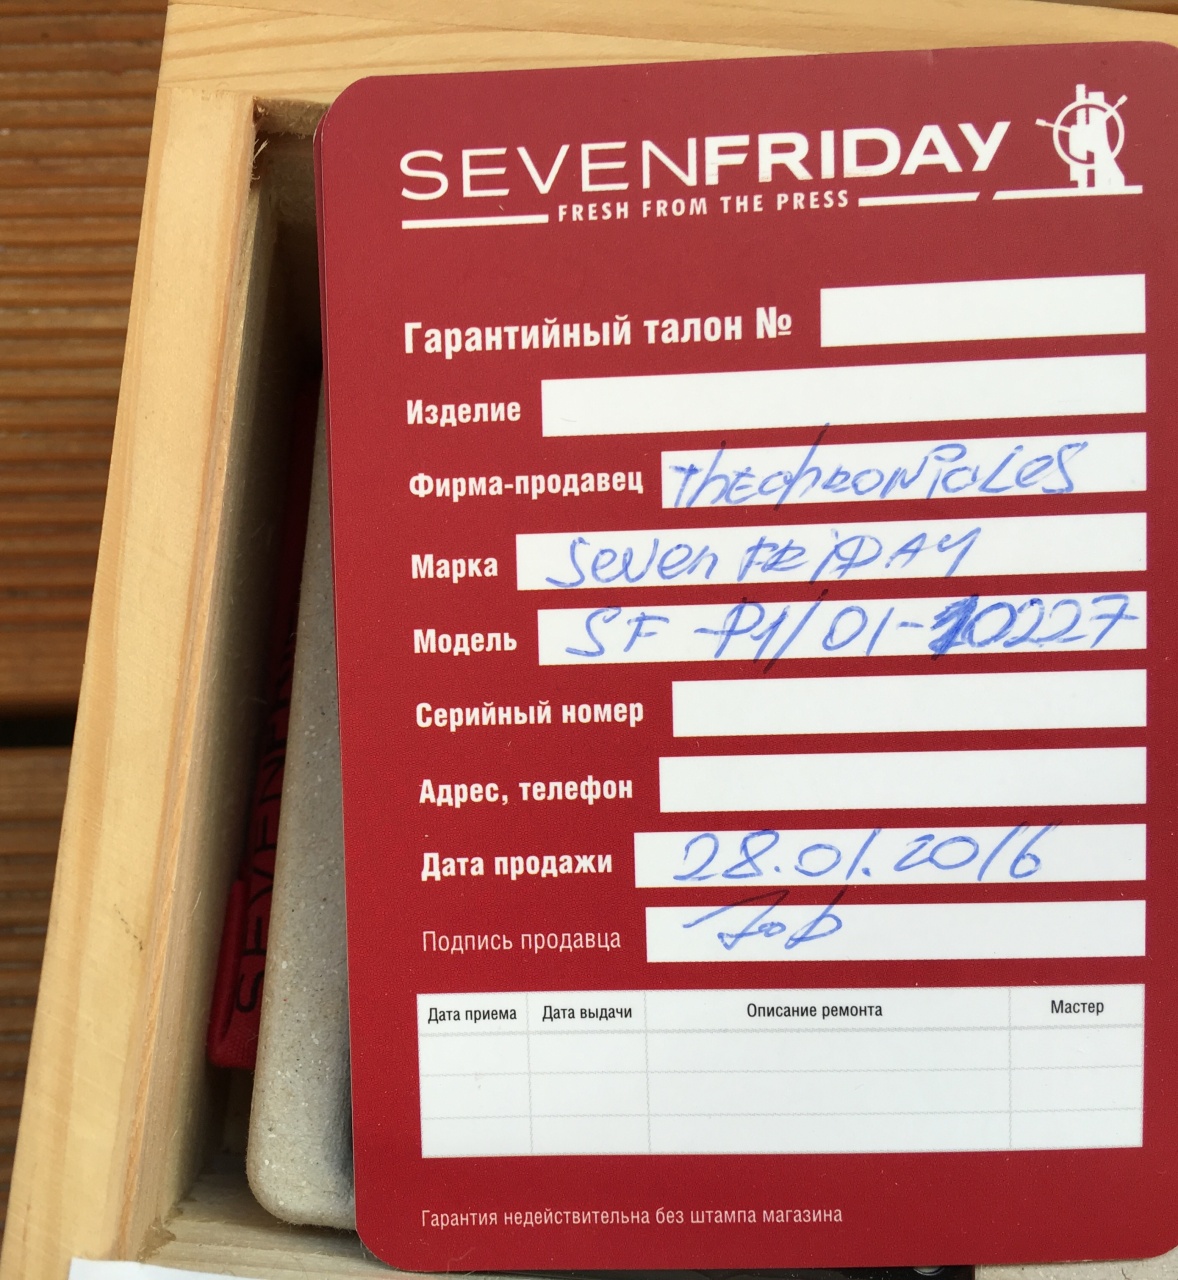 SEVENFRIDAY
FRESH FROM THE PRESS
Гарантийный талон №
Изделие
Фирма-продавец
Марка Seven FRiDAY
Модель SF-P1/01-10227
Серийный номер
Адрес, телефон
Дата продажи 28.01.2016
Подпись продавца
Дата приема Дата выдачи Описание ремонта Мастер
Гарантия недействительна без штампа магазина
SEVENFRI